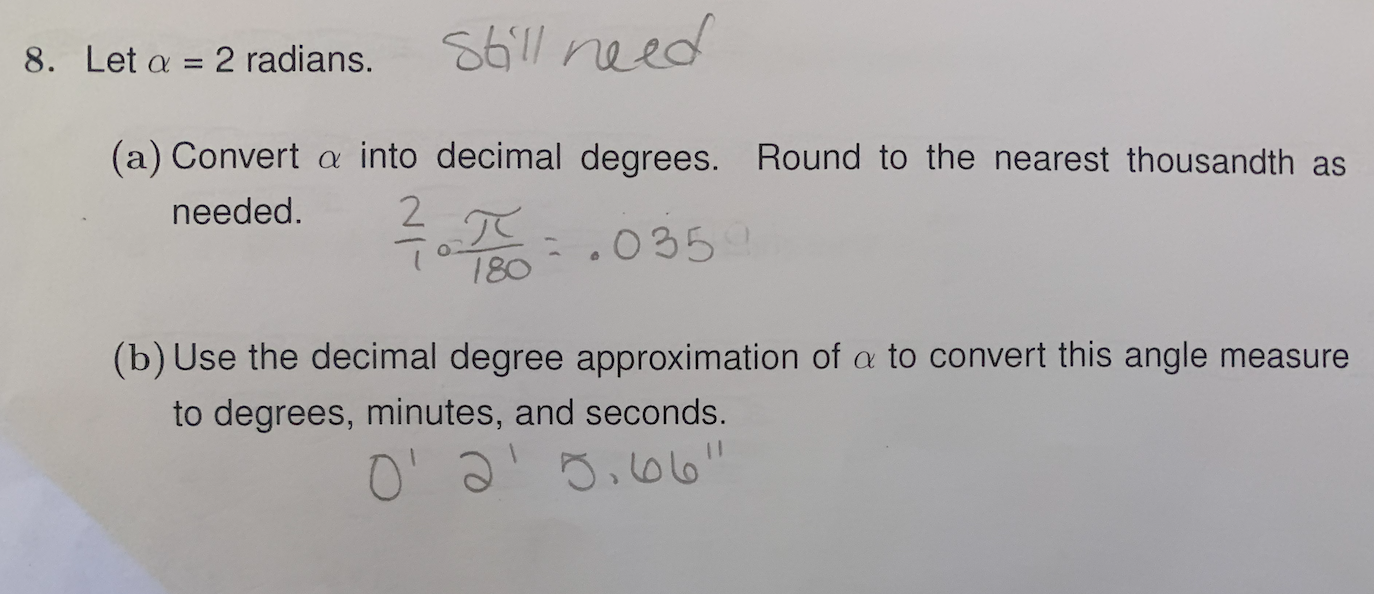 8. Let α = 2 radians. Still need
(a) Convert α into decimal degrees. Round to the nearest thousandth as
needed.
2/1 · π/180 = .035
(b) Use the decimal degree approximation of α to convert this angle measure
to degrees, minutes, and seconds.
0' 2' 5.66"